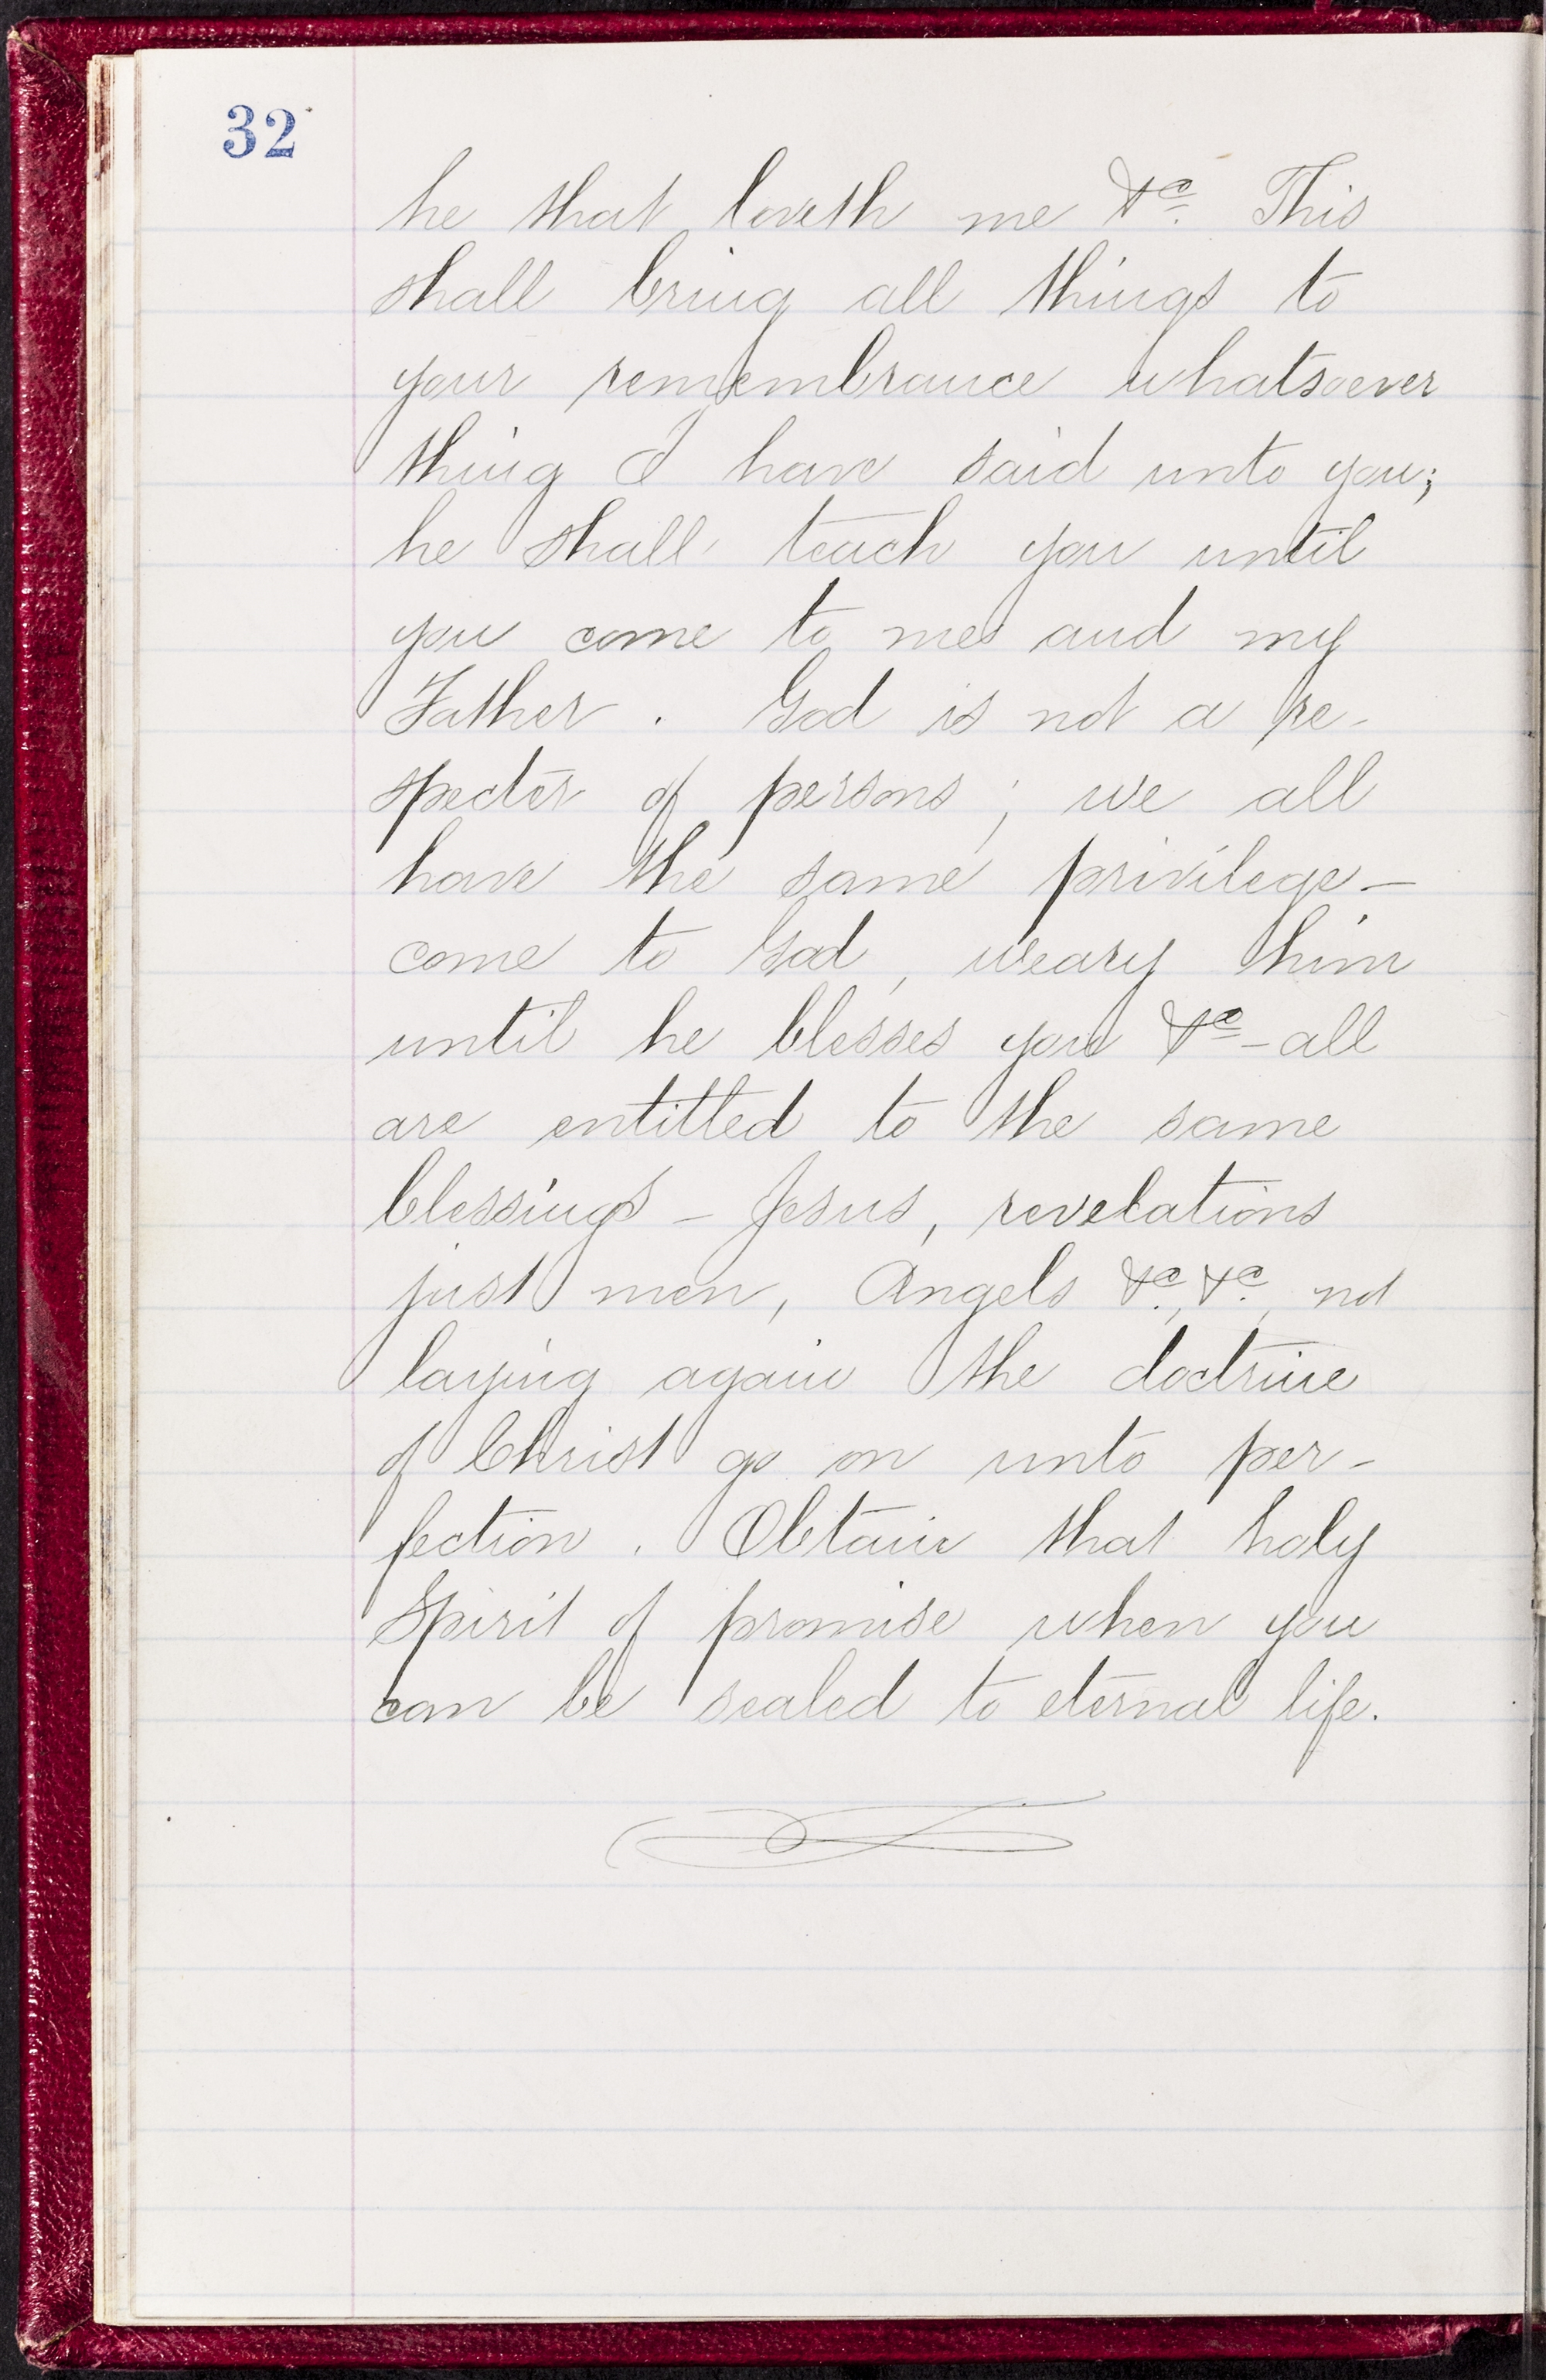 32
he that loveth me &c. This
shall bring all things to
your remembrance whatsoever
thing I have said unto you;
he shall teach you until
you come to me and my
Father. God is not a re-
specter of persons; we all
have the same privilege—
come to God, weary him
until he blesses you &c—all
are entitled to the same
blessings – Jesus, revelations
just men, Angels &c., &c., not
laying again the doctrine
of Christ go on unto per-
fection. Obtain that holy
Spirit of promise when you
can be sealed to eternal life.